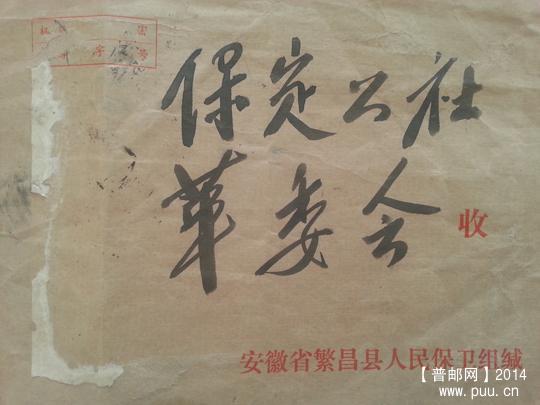 机 密
字 号
保定公社
革委会
收
安徽省繁昌县人民保卫组缄
【普邮网】2014
www.puu.cn